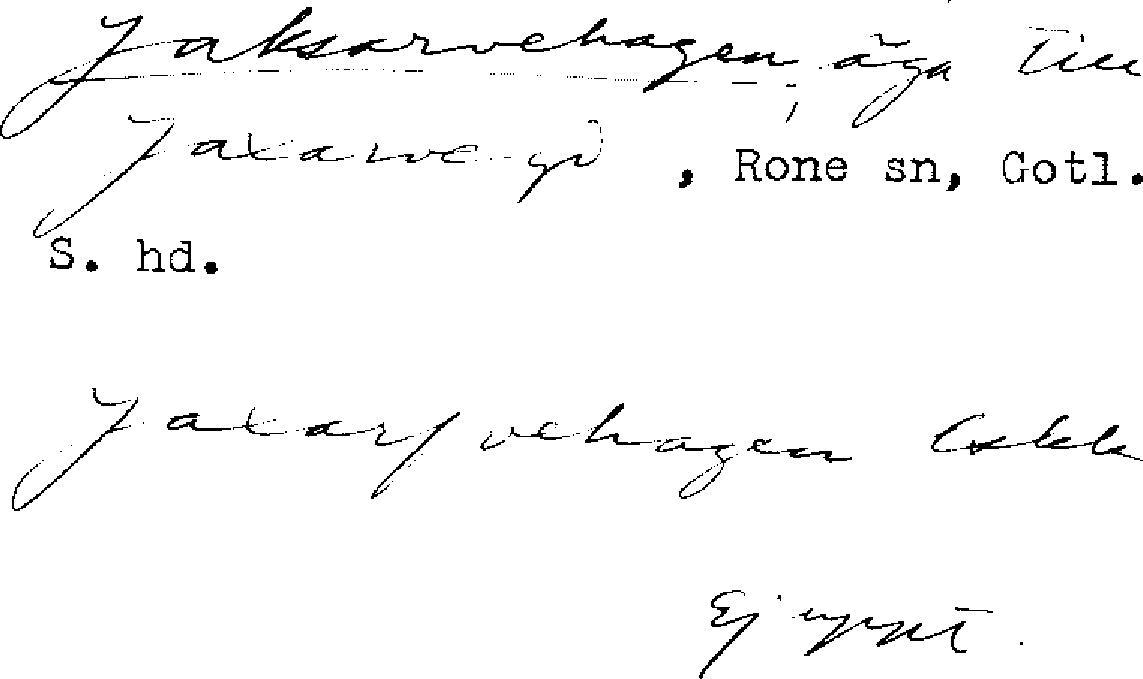 Jaksarvehagen, äga till
Jaxarve gd, Rone sn, Gotl.
S. hd.
Jaxarfvehagen Eskk
Ej uppt.